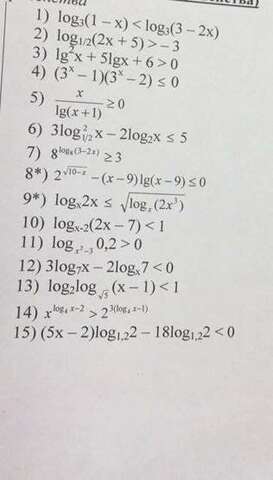 1) log₃(1 – x) < log₃(3 – 2x)
2) log₁/₂(2x + 5) > – 3
3) lg²x + 5lgx + 6 > 0
4) (3ˣ – 1)(3ˣ – 2) ≤ 0
5) x/lg(x+1) ≥ 0
6) 3log²₁/₂x – 2log₂x ≤ 5
7) 8^(log₈(3–2x)) ≥ 3
8*) 2^(√(10–x)) – (x – 9)lg(x – 9) ≤ 0
9*) logₓ2x ≤ √(logₓ(2x³))
10) logₓ₋₂(2x – 7) < 1
11) log_(x²–3) 0,2 > 0
12) 3log₇x – 2logₓ7 < 0
13) log₂log_(√5)(x – 1) < 1
14) x^(log₄x–2) > 2^(3(log₄x–1))
15) (5x – 2)log₁,₂2 – 18log₁,₂2 < 0